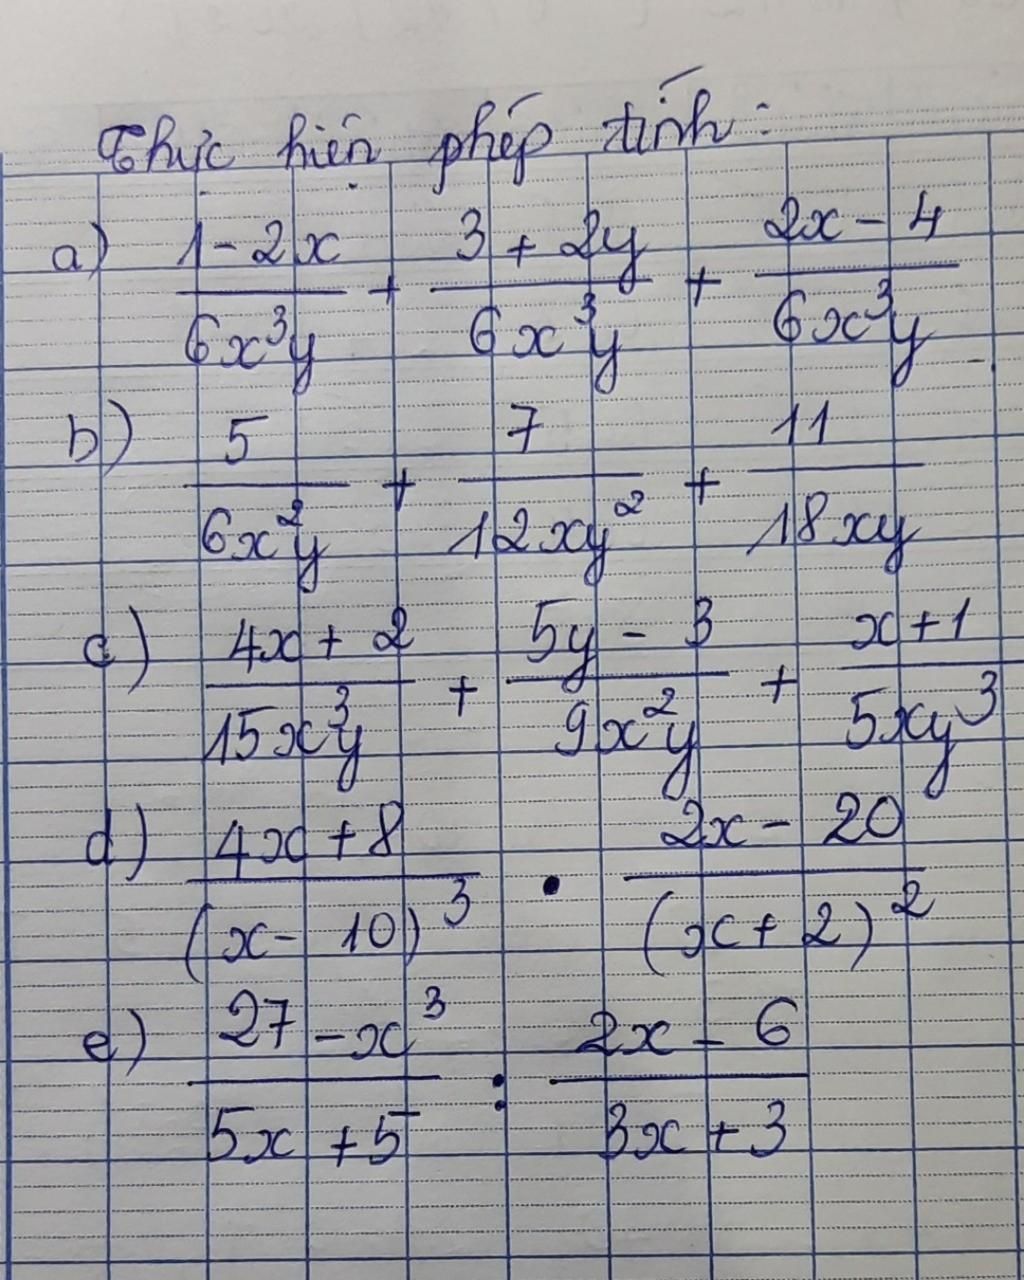 Thực hiện phép tính:
a) \frac{1-2x}{6x^3y} + \frac{3+2y}{6x^3y} + \frac{2x-4}{6x^3y}
b) \frac{5}{6x^2y} + \frac{7}{12xy^2} + \frac{11}{18xy}
c) \frac{4x+2}{15x^3y} + \frac{5y-3}{9x^2y} + \frac{x+1}{5xy^3}
d) \frac{4x+8}{(x-10)^3} \cdot \frac{2x-20}{(x+2)^2}
e) \frac{27-x^3}{5x+5} : \frac{2x-6}{3x+3}